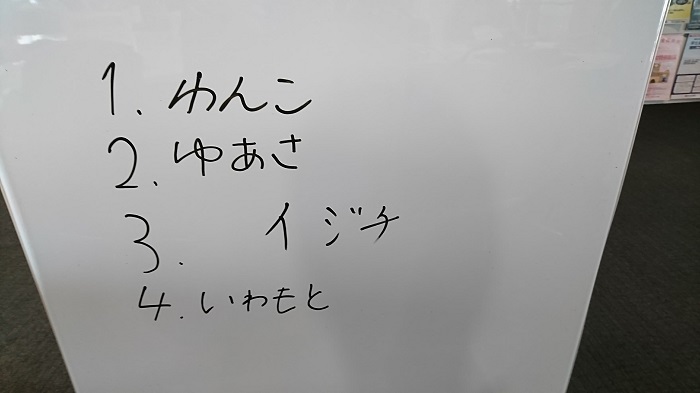 1. わんこ
2. ゆあさ
3. イジチ
4. いわもと